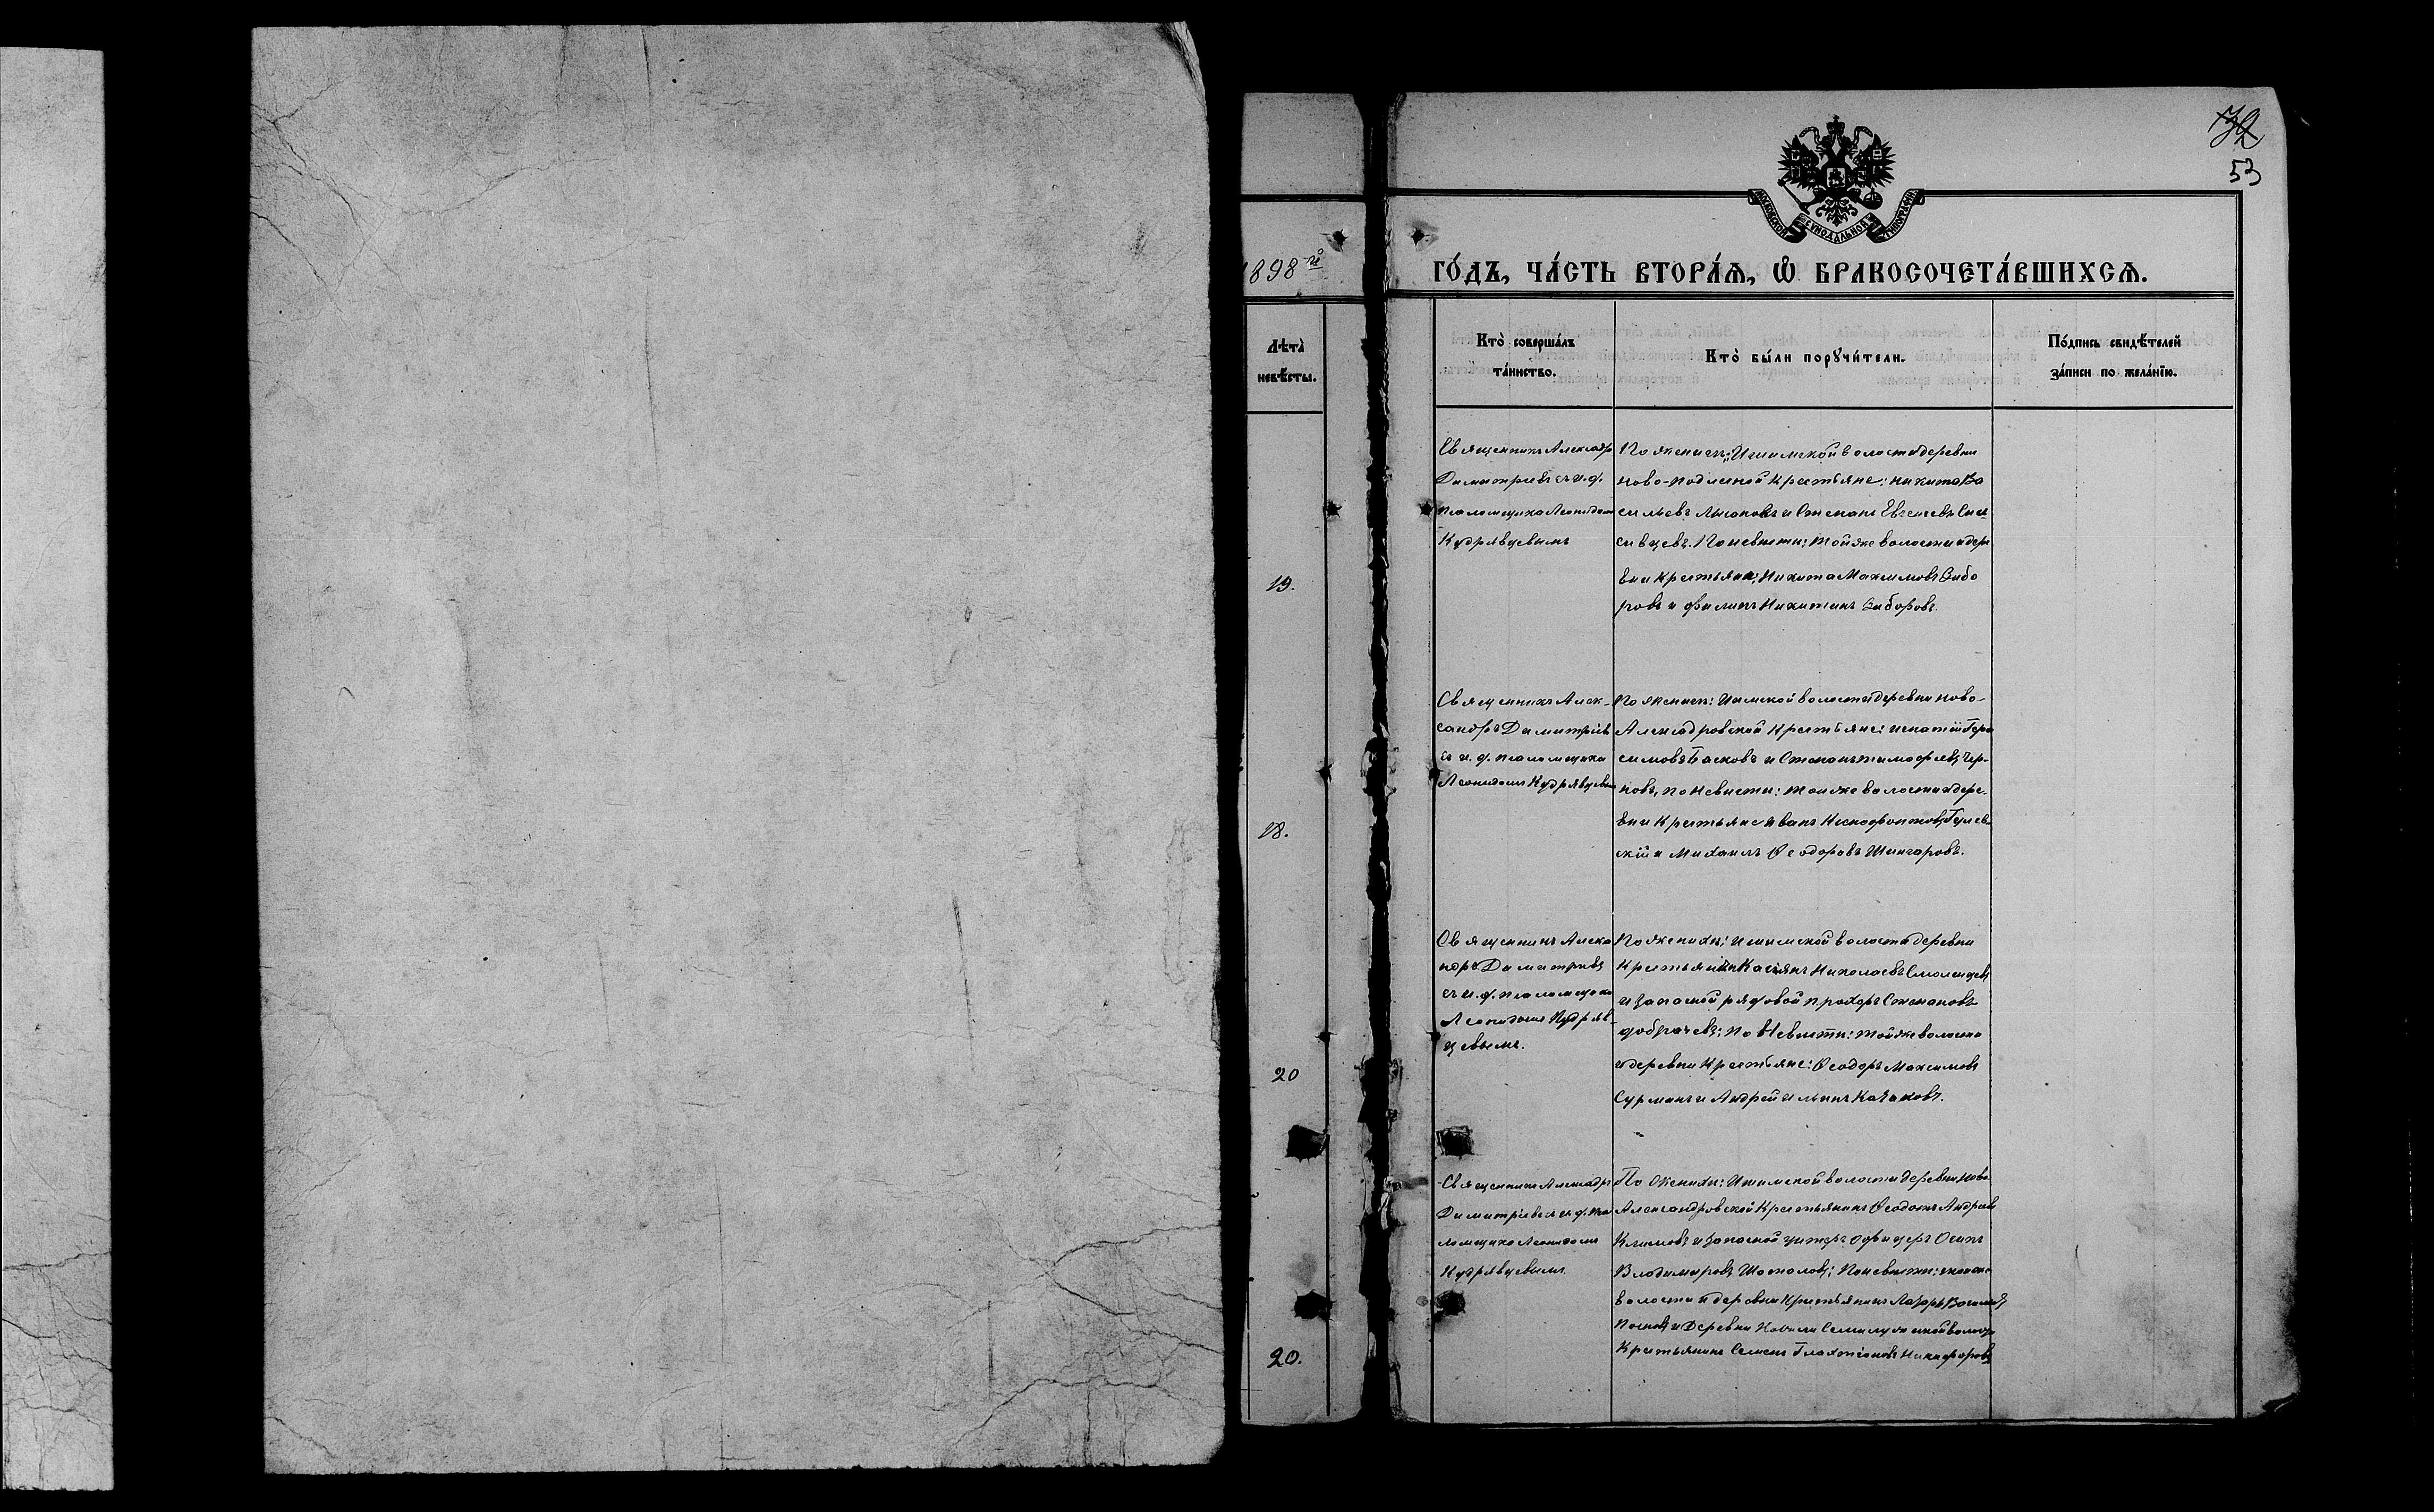 72
53
МОСКОВСКОЙ СѴНОДАЛЬНОЙ ТИПОГРАФІИ
1898 го
ГО́ДЪ, ЧА́СТЬ ВТОРА́Ѧ, Ѿ БРАКОСОЧЕТА́ВШИХСѦ.
Лѣта̀
невѣ́сты.
Кто̀ соверша́лъ
та́инство.
Кто̀ бы́ли порꙋчи́тели.
По́дпись свидѣ́телей
за́писи по жела́нїю.
19.
Священникъ Александръ
Димитріевъ съ и. д.
псаломщика Леонидомъ
Кудрявцевымъ
По женихѣ: Ишимской волости деревни
Ново-подлесной Крестьяне: Никита Ва
сильевъ Лысаковъ и Степанъ Евгеньевъ
сивцевъ. По невѣсти: той же волости и дере
вни Крестьяне: Никита Максимовъ Зибо
ровъ и Филипъ Никитинъ Зиборовъ.
18.
Священникъ Алек-
сандръ Димитріевъ
съ и. д. псаломщика
Леонидомъ Кудрявцевымъ
По женихѣ: Ишимской волости деревни Ново-
Александровской Крестьяне: Игнатій Гера
симовъ Басковъ и Степанъ Тимофеевъ Чер-
новъ, по Невѣсти: той же волости и дере-
вни Крестьяне Иванъ Ксенофонтовъ
скій и Михаилъ Ѳеодоровъ Шингаровъ.
20
Священникъ Алекса
ндръ Димитріевъ
съ и. д. псаломщика
Леонидомъ Кудряв-
цевымъ.
По женихѣ: Ишимской волости деревни
Крестьянинъ Касіянъ Николаевъ Смоленцевъ
и запасной рядовой Прохоръ Степановъ
Добрачевъ; по Невѣсти: той же волости
и деревни Крестьяне: Ѳеодоръ Максимовъ
Сурминъ и Андрей Ильинъ Казаковъ.
20.
Священникъ Александръ
Димитріевъ съ и. д. пса
ломщика Леонидомъ
Кудрявцевымъ.
По Женихѣ: Ишимской волости деревни Ново
Александровской Крестьянинъ Ѳеодотъ Андреевъ
Климовъ и запасной унтеръ офицеръ Осипъ
Владимировъ Шатоловъ; По невѣсти: той же
волости и деревни Крестьянинъ Лазарь
и Деревни Семилужной волости
Крестьянинъ Семенъ Никифоровъ